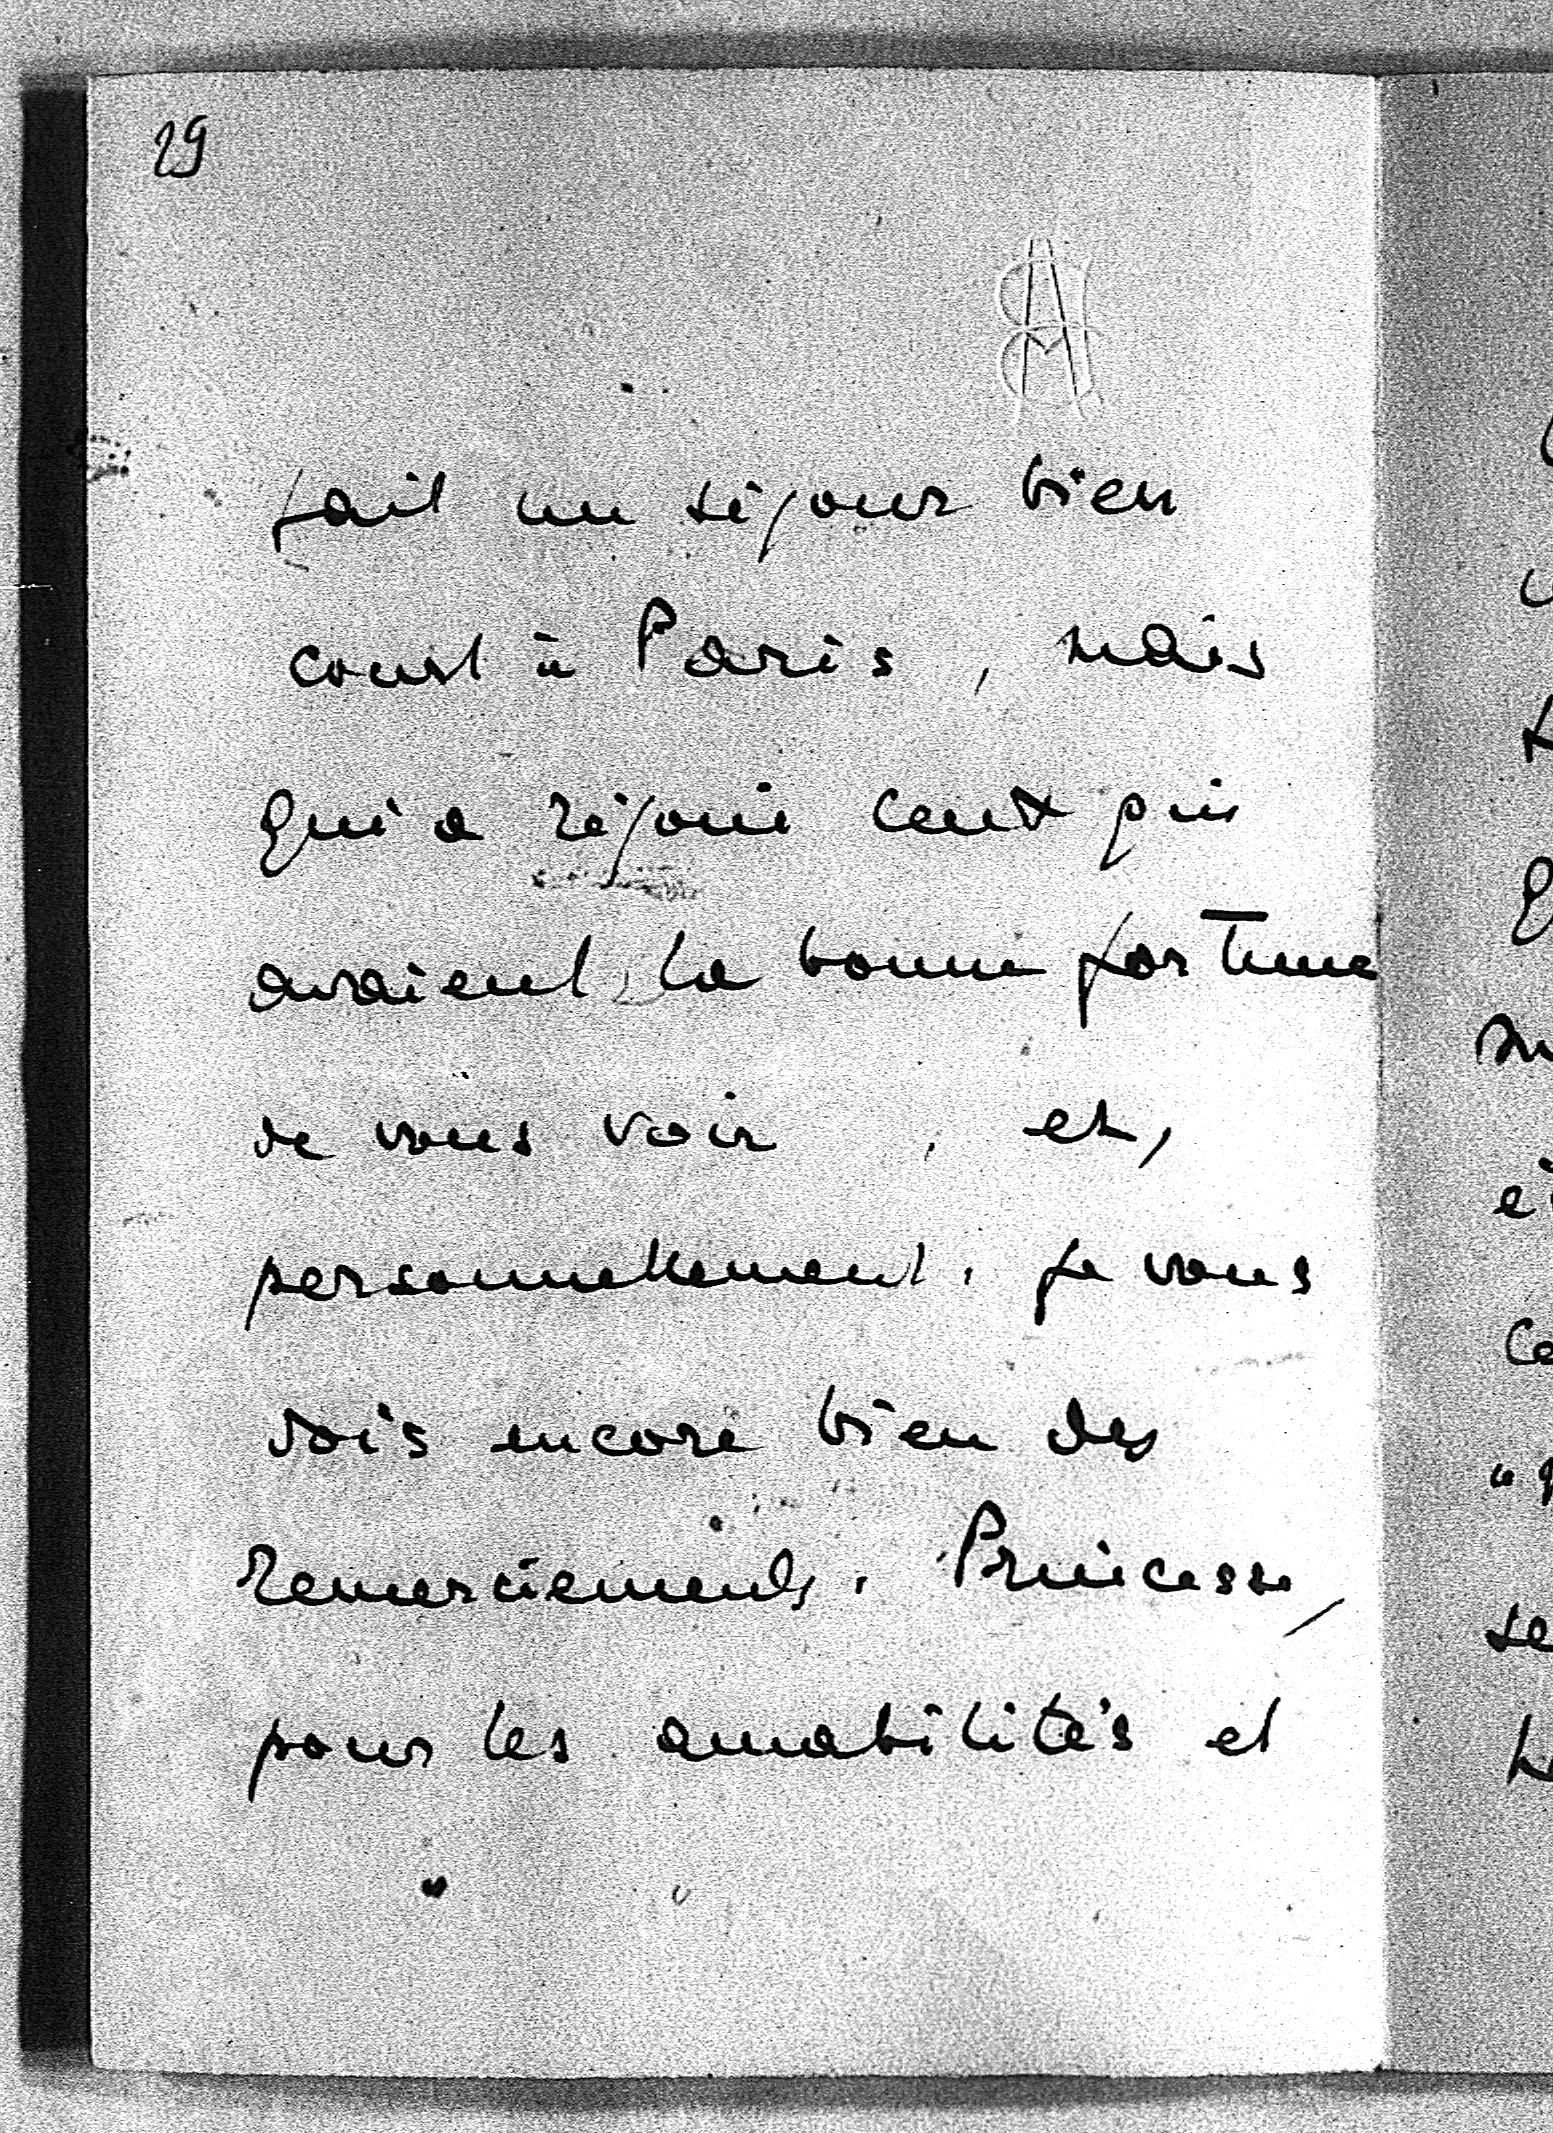 29
fait un séjour bien
court à Paris, mais
qui a réjoui ceux qui
avaient la bonne fortune
de vous voir, et,
personnellement, je vous
dois encore bien des
remerciements, Princesse,
pour les amabilités et